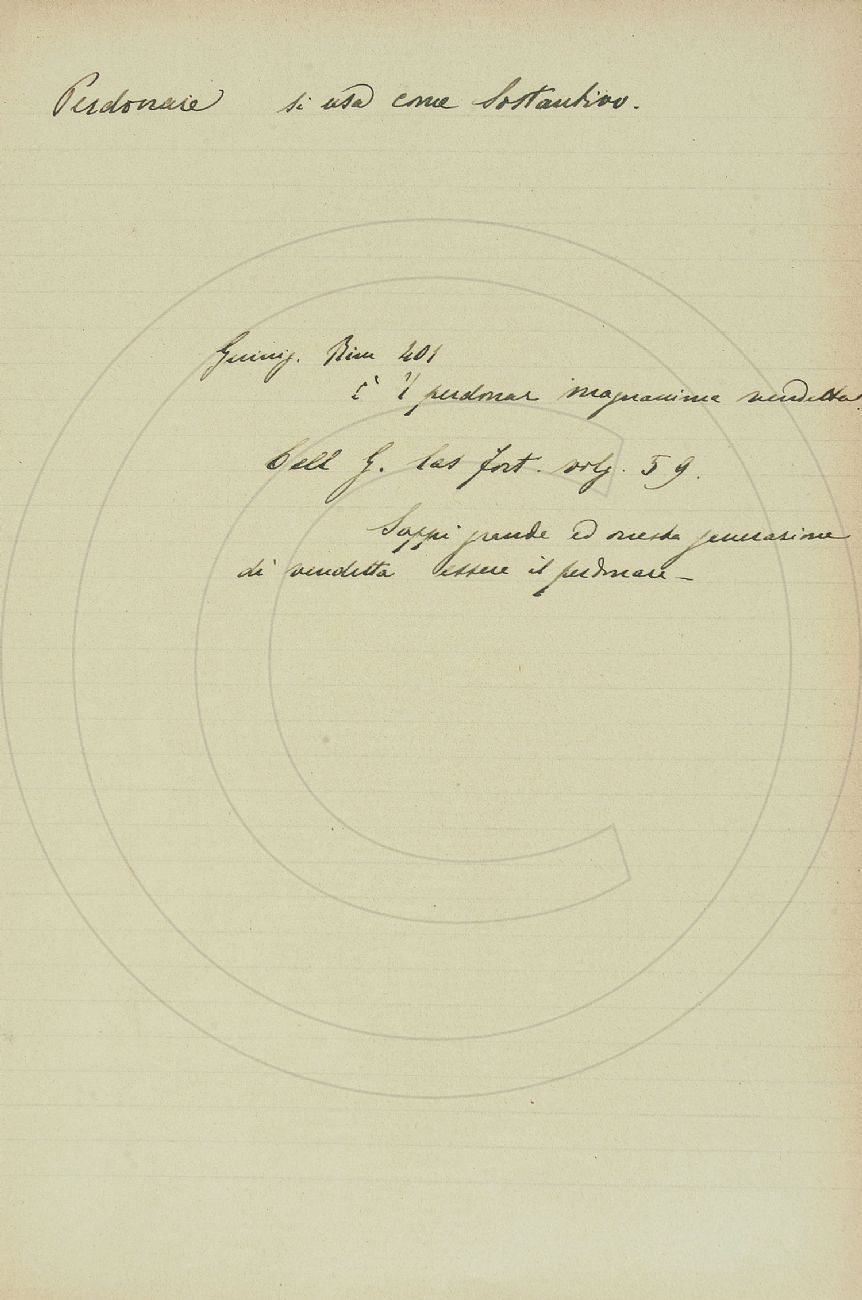 Perdonare si usa come Sostantivo.
Guinig. Rim 201
È 'l perdonar magnanima vendetta
Cell G. las fort. volg. 59.
Sappi grande ed onesta generazione
di vendetta essere il perdonare –